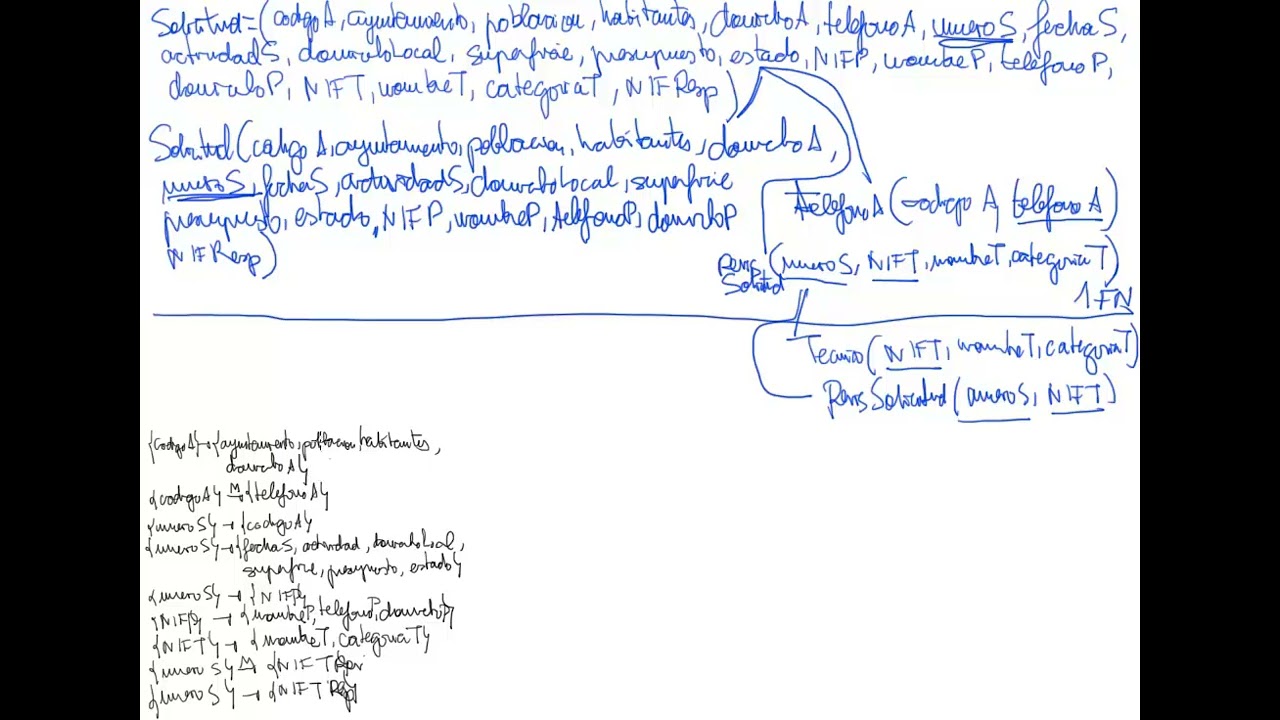 Solicitud=(codigoA, ayuntamiento, poblacion, habitantes, domicilioA, telefonoA, numeroS, fechaS,
actividadS, domicilioLocal, superficie, presupuesto, estado, NIFP, nombreP, telefonoP,
domicilioP, NIFT, nombreT, categoriaT, NIFResp)
Solicitud(codigoA, ayuntamiento, poblacion, habitantes, domicilioA,
numeroS, fechaS, actividadS, domicilioLocal, superficie
presupuesto, estado, NIFP, nombreP, telefonoP, domicilioP
NIFResp)
TelefonoA(codigoA, telefonoA)
Solicitud (numeroS, NIFT, nombreT, categoriaT)
1FN
Tecnico(NIFT, nombreT, categoriaT)
Solicitud(numeroS, NIFT)
{codigoA}→{ayuntamiento, poblacion, habitantes,
domicilioA}
{codigoA} M→ {telefonoA}
{numeroS} → {codigoA}
{numeroS}→{fechaS, actividad, domicilioLocal,
superficie, presupuesto, estado}
{numeroS} → {NIFP}
{NIFP} → {nombreP, telefonoP, domicilioP}
{NIFT} → {nombreT, categoriaT}
{numeroS} M→ {NIFT
{numeroS} → {NIFT Resp}